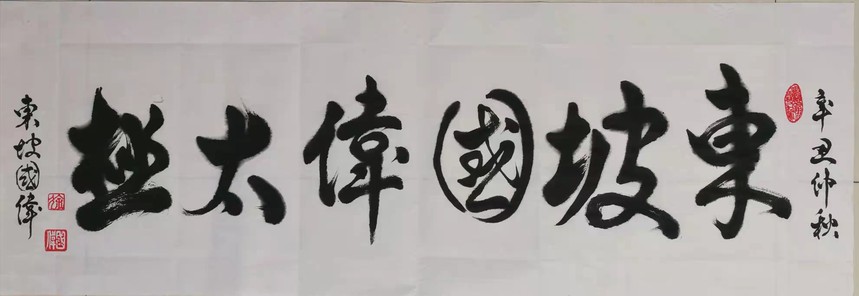 辛丑仲秋
東坡國偉太極
東坡國偉